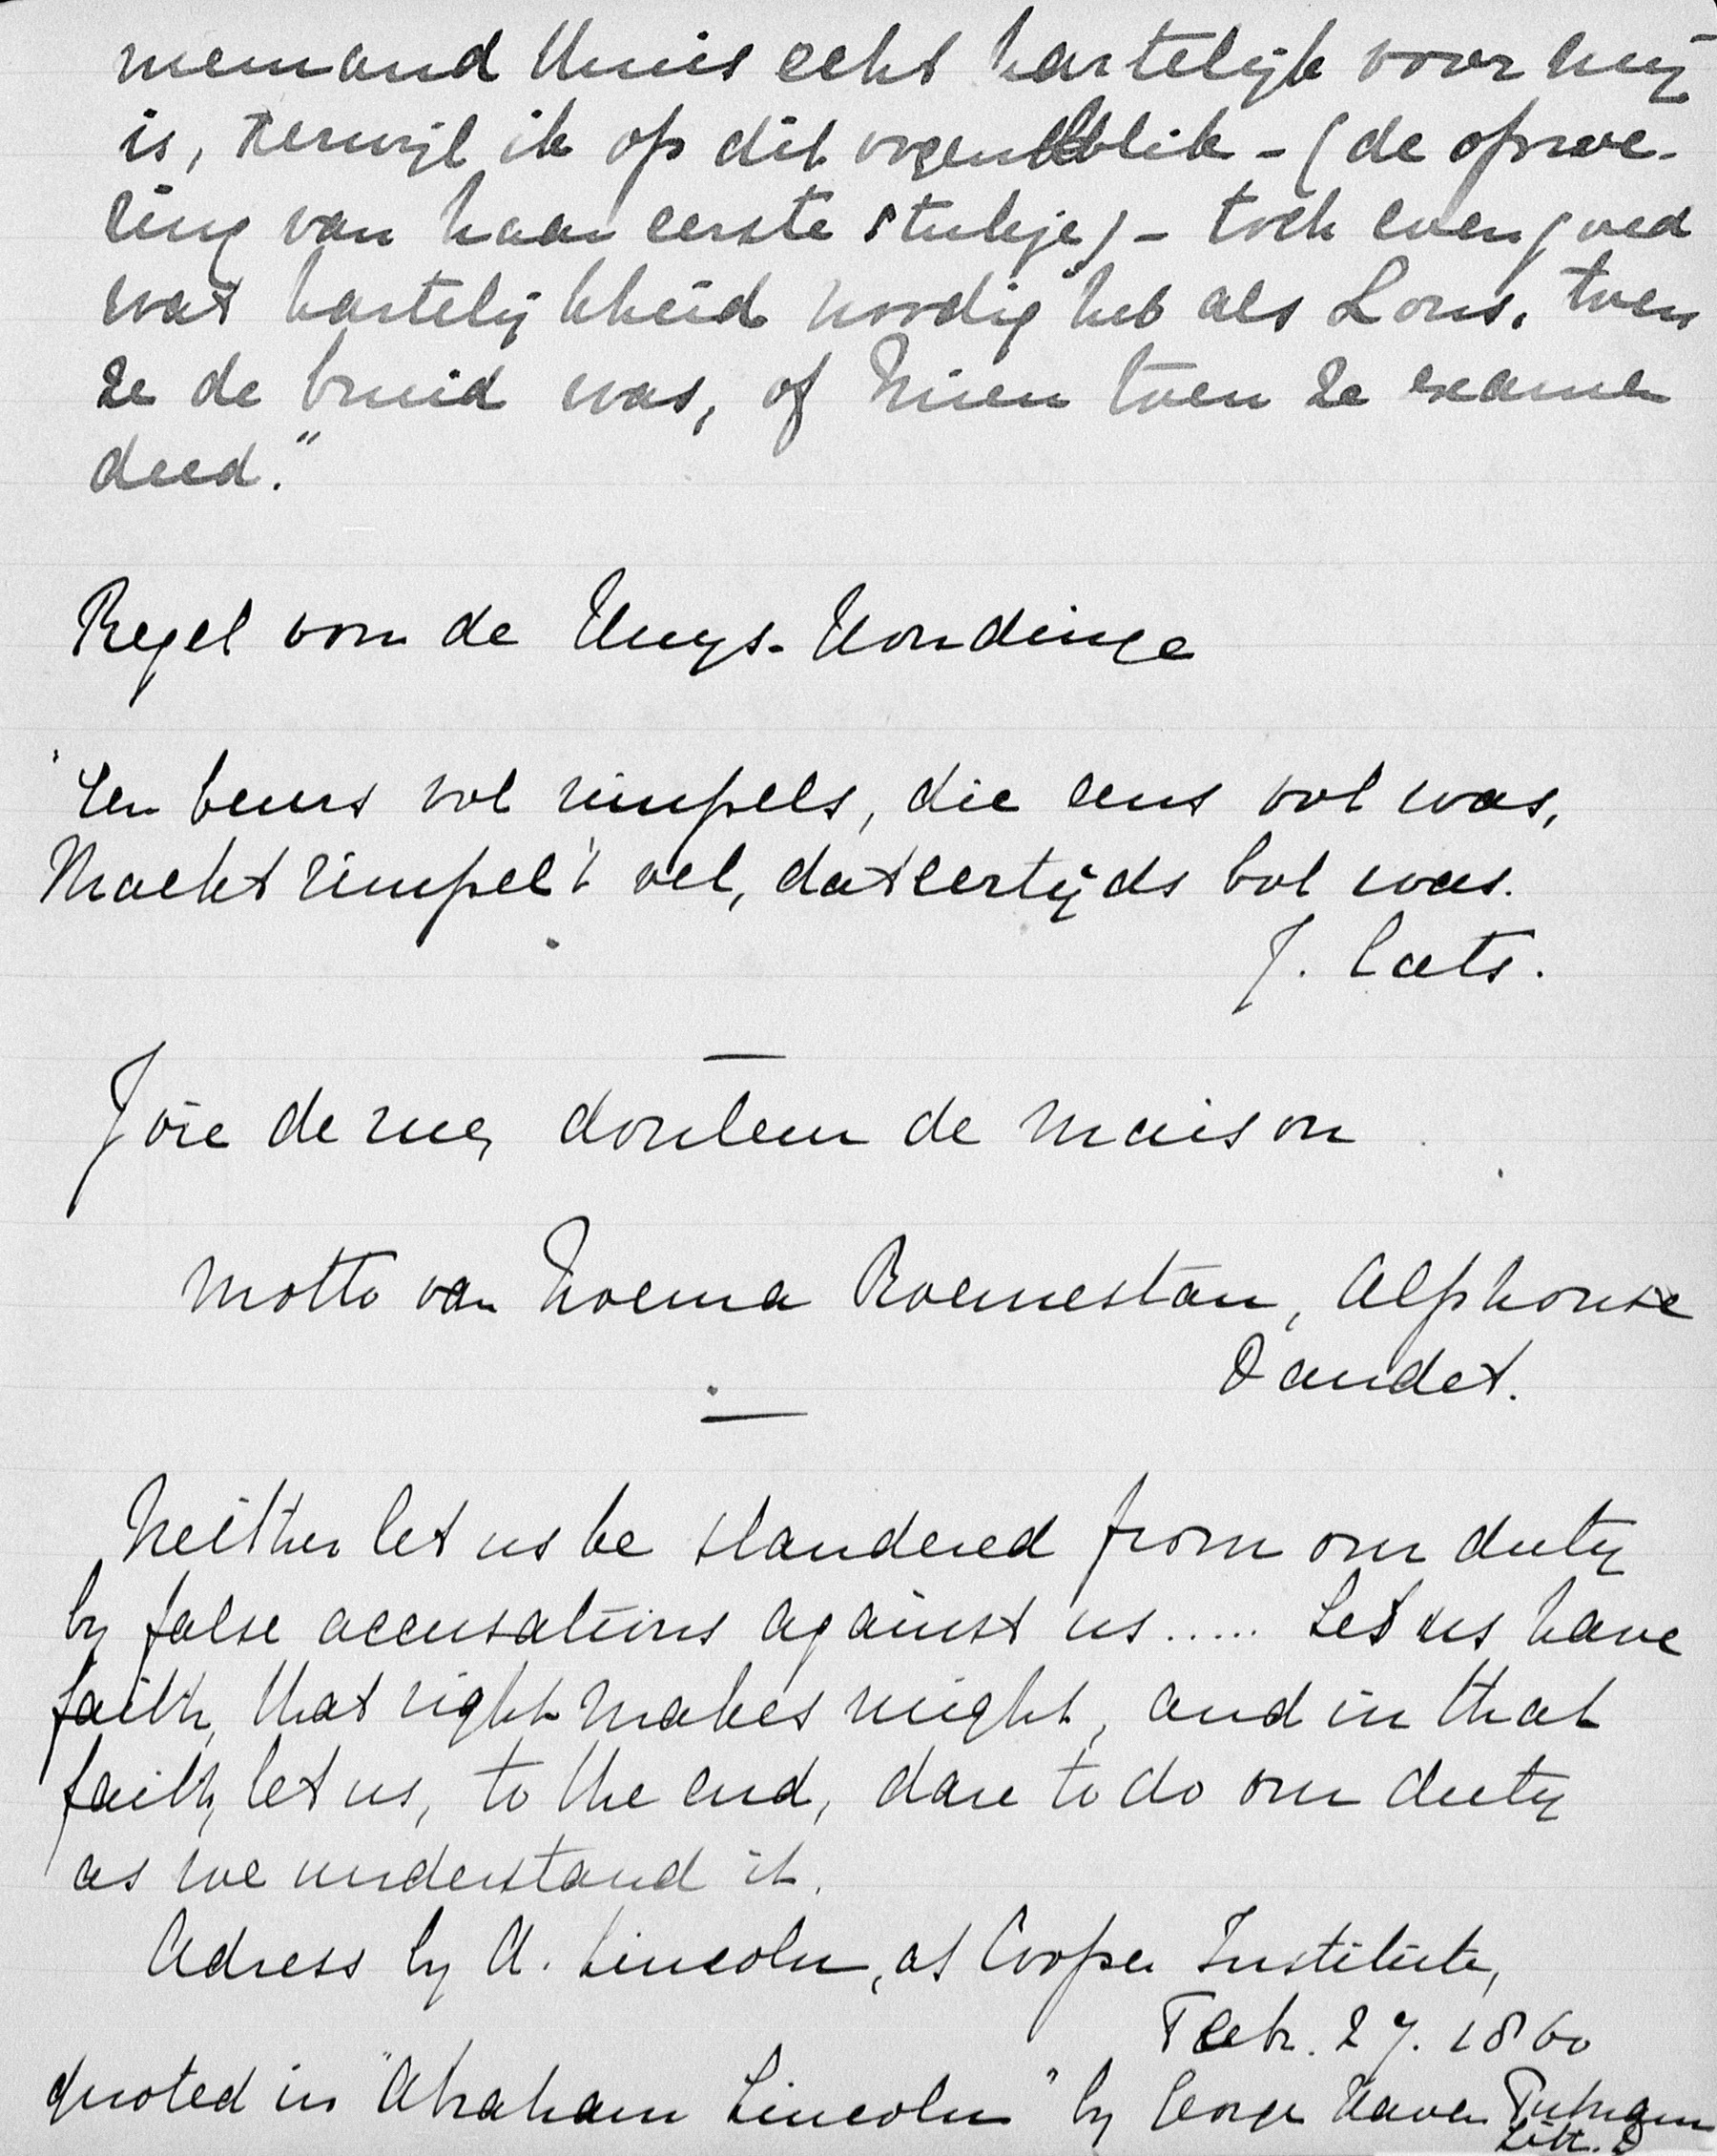 niemand thuis echt hartelijk voor mij
is, terwijl ik op dit oogenblik - (de opvoe-
ring van haar eerste stukje) - toch evengoed
wat hartelijkheid noodig heb als Lous, toen
ze de bruid was, of Nien toen ze examen
deed."
Regel van de Huys-Houdinge
'Een beurs vol rimpels, die eens vol was,
Maekt rimpel 't vel, dat eertijds bol was.
J. Cats.
Joie de rue, douleur de maison
Motto van Noema Roemestan, Alphonse
Daudet.
Neither let us be slandered from our duty
by false accusations against us..... Let us have
faith, that right makes might, and in that
faith, let us, to the end, dare to do our duty
as we understand it.
Adress by A. Lincoln, at Cooper Institute,
Febr. 27. 1860
quoted in "Abraham Lincoln" by George Haven Putnam
Litt. D